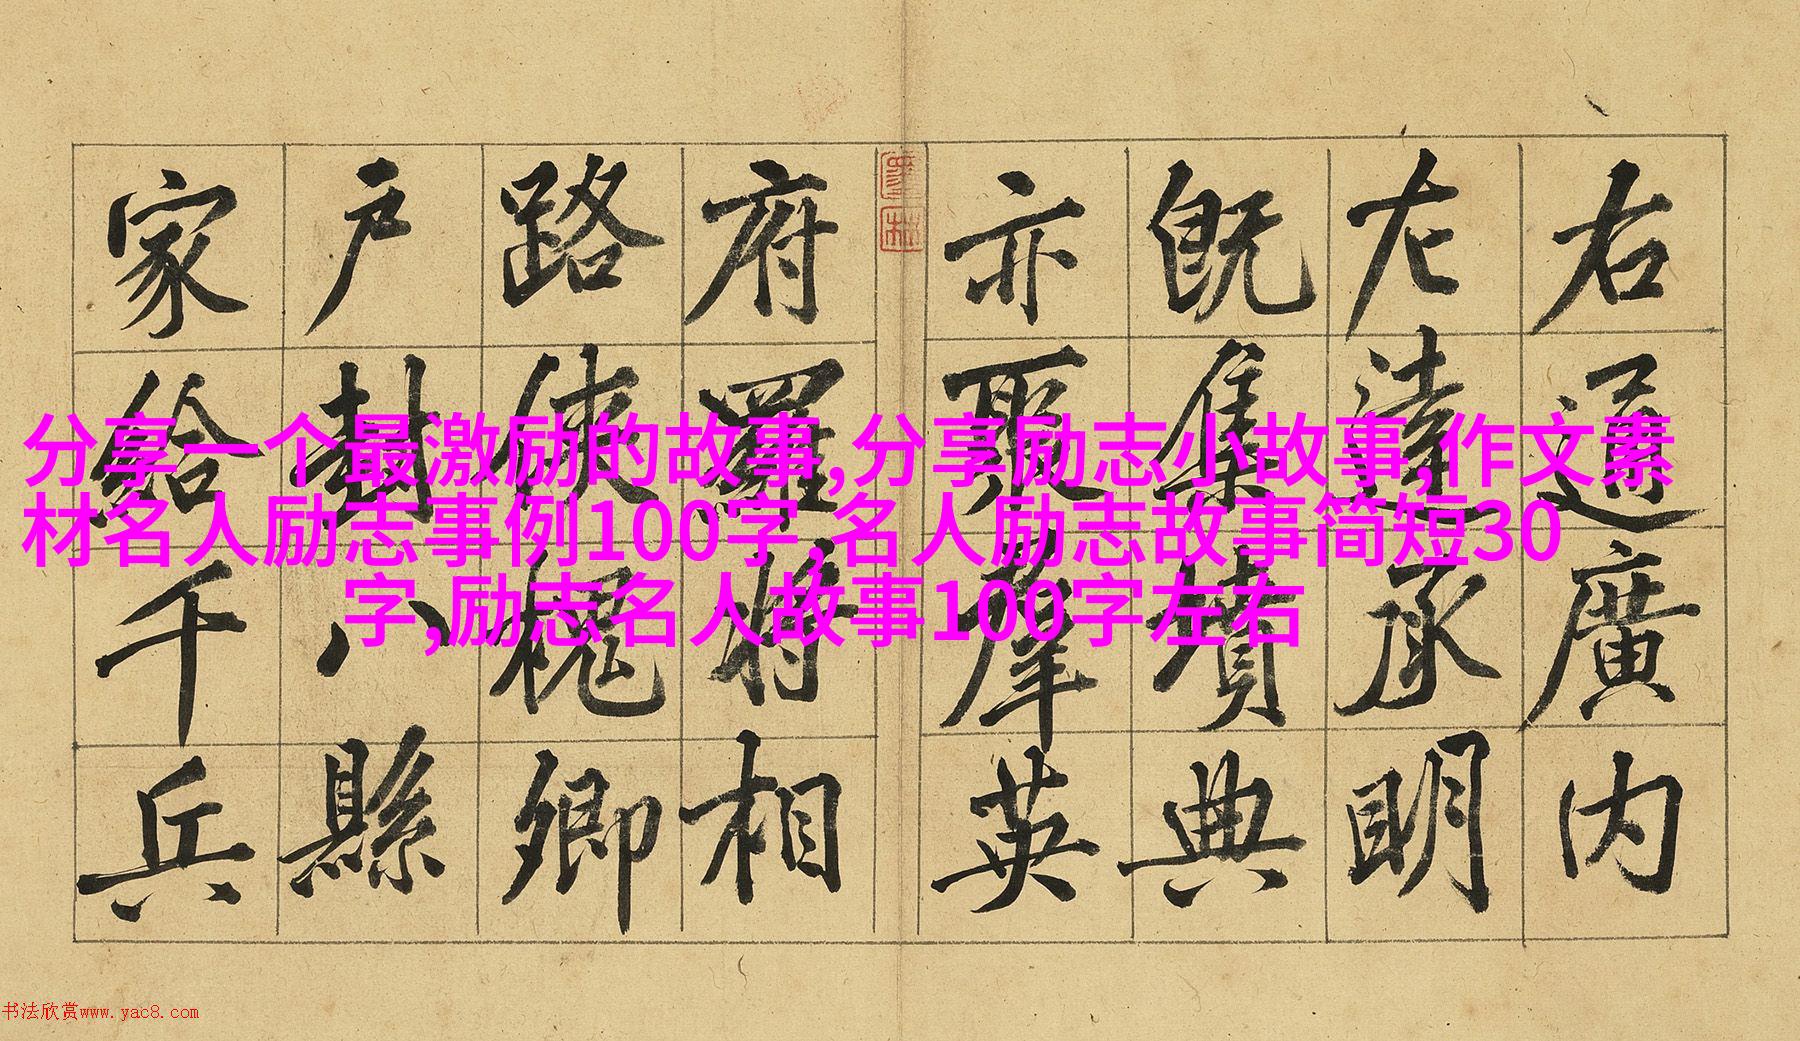 右通廣内
左達承明
既集墳典
亦聚羣英
府羅將相
路俠槐卿
户封八縣
家給千兵
分享一个最激励的故事,分享励志小故事,作文素
材名人励志事例100字,名人励志故事简短30
字,励志名人故事100字左右
书法欣赏www.yac8.com